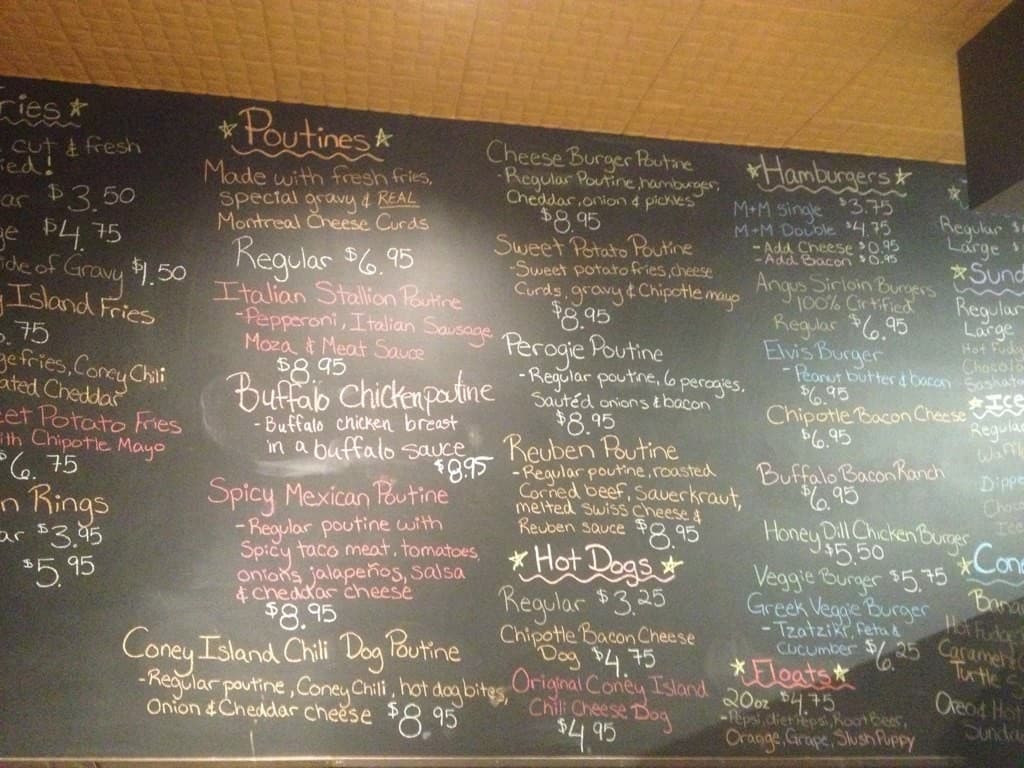 ries
cut & fresh
ied!
ar $3.50
ge $4.75
ide of Gravy $1.50
Island Fries
.75
ge fries, Coney Chili
ated Cheddar
eet Potato Fries
ith Chipotle Mayo
$6.75
n Rings
ar $3.95
$5.95
Poutines
Made with fresh fries,
special gravy & REAL
Montreal Cheese Curds
Regular $6.95
Italian Stallion Poutine
- Pepperoni, Italian Sausage
Moza & Meat Sauce
$8.95
Buffalo Chicken poutine
- Buffalo chicken breast
in a buffalo sauce
$8.95
Spicy Mexican Poutine
- Regular poutine with
Spicy taco meat, tomatoes,
onions, jalapeños, salsa
& cheddar cheese
$8.95
Coney Island Chili Dog Poutine
- Regular poutine, Coney Chili, hot dog bites,
Onion & Cheddar cheese $8.95
Cheese Burger Poutine
- Regular Poutine, hamburger,
Cheddar, onion & pickles
$8.95
Sweet Potato Poutine
- Sweet potato fries, cheese
Curds, gravy & Chipotle mayo
$8.95
Perogie Poutine
- Regular poutine, 6 perogies,
Sautéd onions & bacon
$8.95
Reuben Poutine
- Regular poutine, roasted
Corned beef, Sauerkraut,
melted swiss cheese &
Reuben sauce $8.95
Hot Dogs
Regular $3.25
Chipotle Bacon Cheese
Dog $4.75
Original Coney Island
Chili Cheese Dog
$4.95
Hamburgers
M+M Single $3.75
M+M Double $4.75
- Add Cheese $0.95
- Add Bacon $0.95
Angus Sirloin Burgers
100% Cirtified
Regular $6.95
Elvis Burger
- Peanut butter & bacon
$6.95
Chipotle Bacon Cheese
$6.95
Buffalo Bacon Ranch
$6.95
Honey Dill Chicken Burger
$5.50
Veggie Burger $5.75
Greek Veggie Burger
- Tzatziki, feta &
cucumber $6.25
Floats
20oz $4.75
- Pepsi, diet Pepsi, Root Beer,
Orange, Grape, Slush Puppy
Regular $
Large $
Sund
Regular
Large
Hot Fudg
Chocola
Saskato
Ice
Regula
Waffl
Dippe
Choco
Ice
Cone
Banan
Hot Fudge
Caramel
Turtle S
Oreo & Hot
Sunda